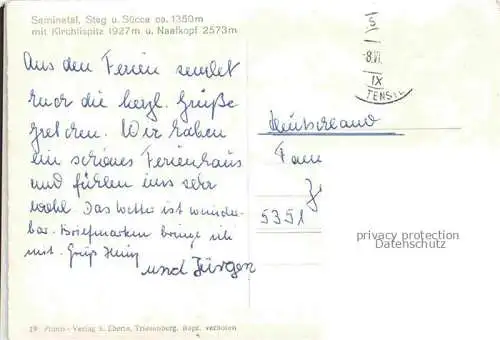 Saminatal, Steg u. Sücca ca. 1350m
mit Kirchlispitz 1927m u. Naafkopf 2573m
Aus den Ferien sendet
Euch die herzl. Grüße
Gretchen. Wir haben
ein schönes Ferienhaus
und fühlen uns sehr
wohl. Das Wetter ist wunder-
bar. Briefmarken bringe ich
mit. Gruß
und Jürgen
19 Photo-Verlag Eberle, Triesenberg. Rept. verboten
8.VI.
IX
Deutschland
Fam
5351
privacy protection
Datenschutz